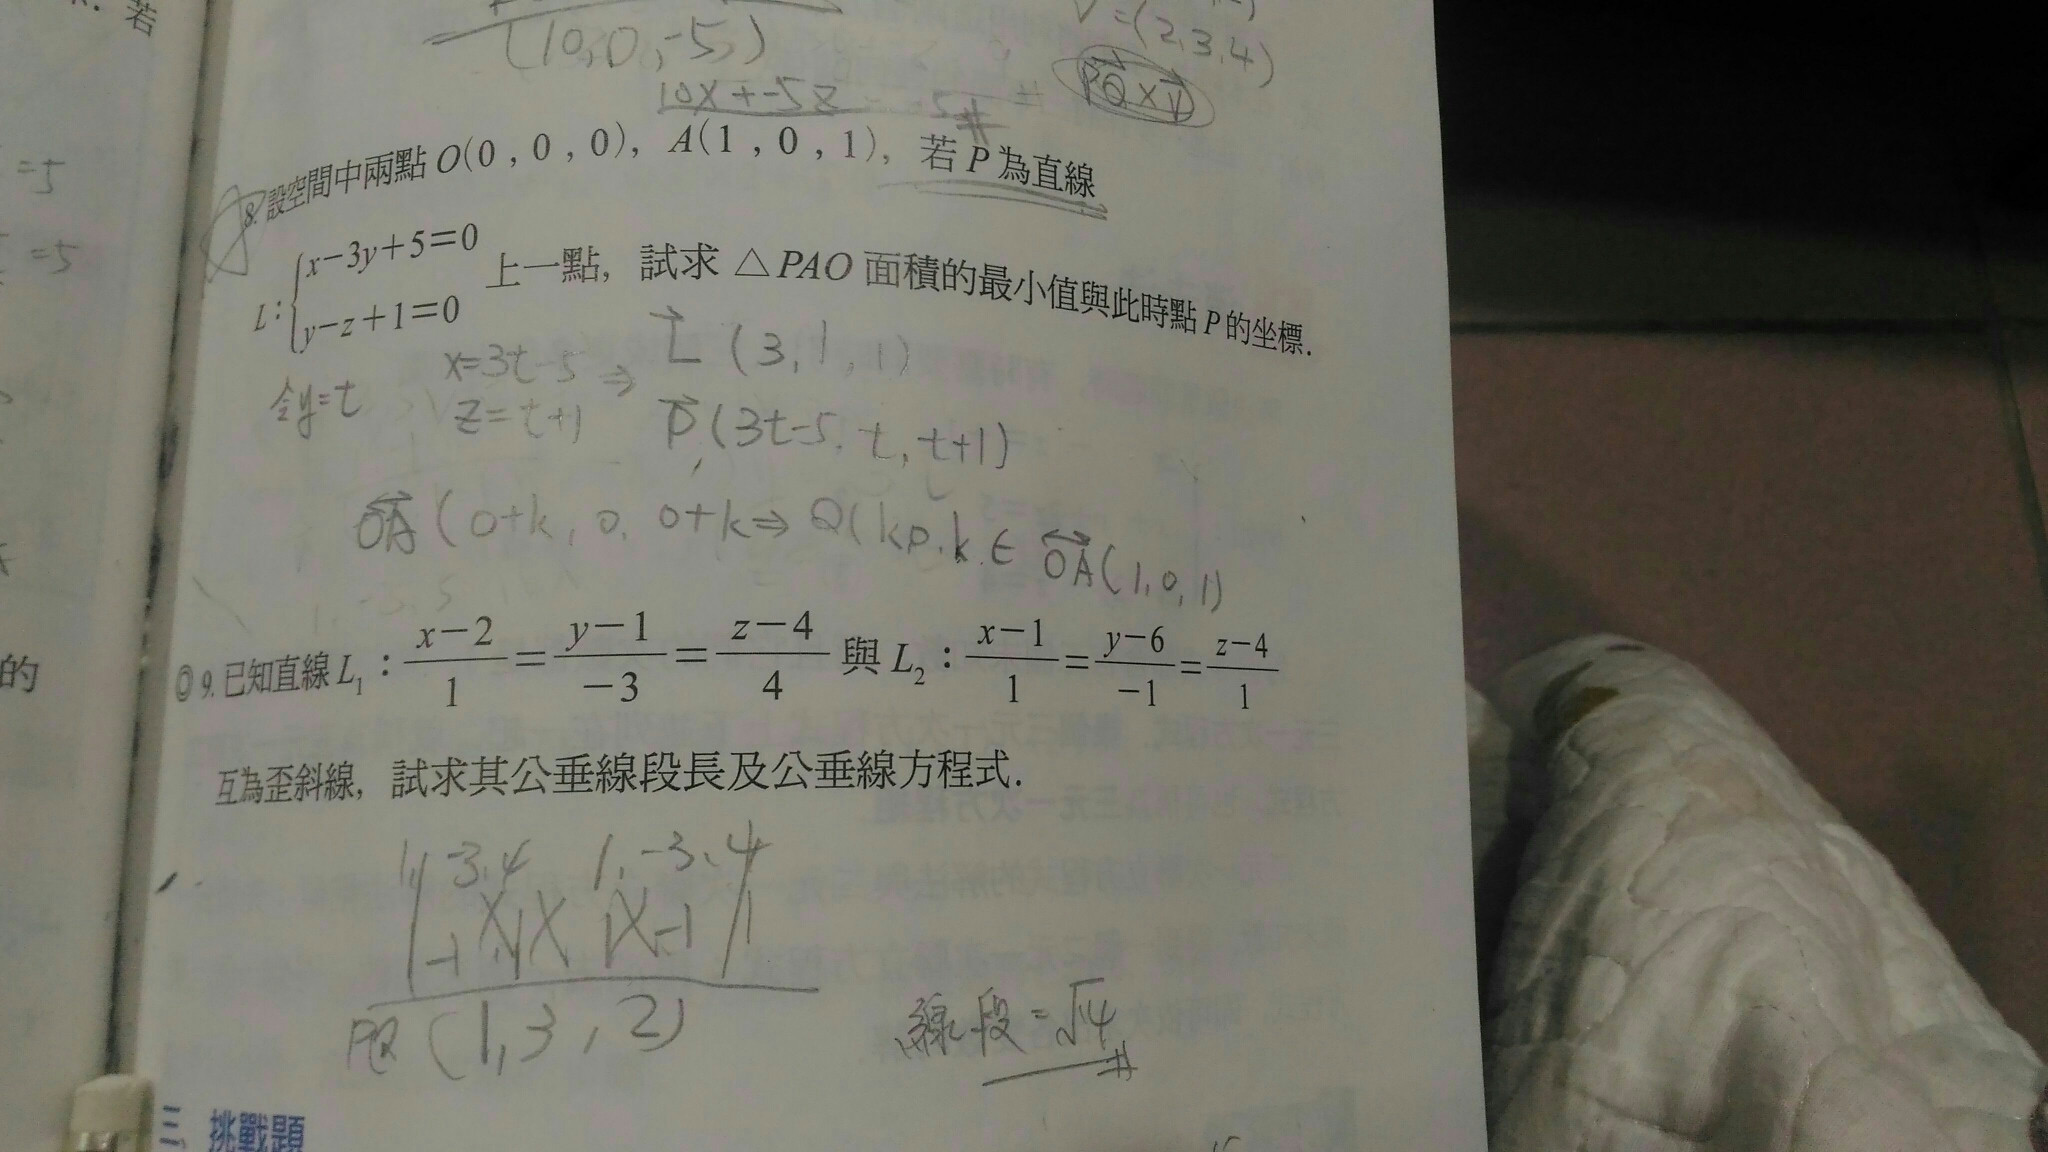 若
(10,0,-5)
V=(2,3,4)
10x+-5z
PQ×V
=5
=5
8. 設空間中兩點 O(0,0,0), A(1,0,1), 若 P 為直線
L:{x-3y+5=0
y-z+1=0 上一點, 試求 △PAO 面積的最小值與此時點 P 的坐標.
令y=t
x=3t-5
z=t+1
⇒ L (3,1,1)
P(3t-5, t, t+1)
OA (0+k, 0, 0+k ⇒ Q(k,0,k ∈ OA(1,0,1)
的
◎9. 已知直線 L₁: (x-2)/1=(y-1)/-3=(z-4)/4 與 L₂: (x-1)/1=(y-6)/-1=(z-4)/1
互為歪斜線, 試求其公垂線段長及公垂線方程式.
1 -3,4 1,-3,4
PQ (1,3,2)
線段=√14
三、挑戰題